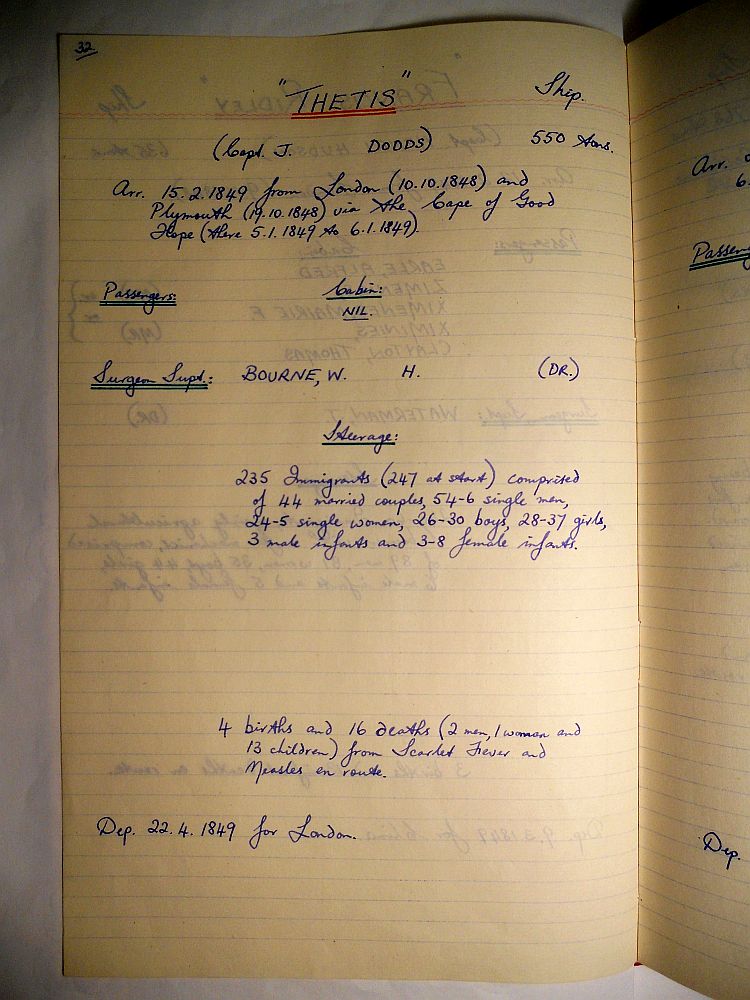 32
"THETIS" Ship.
(Capt. J. DODDS) 550 tons.
Arr. 15.2.1849 from London (10.10.1848) and
Plymouth (19.10.1848) via the Cape of Good
Hope (there 5.1.1849 to 6.1.1849).
Passengers: Cabin:
NIL.
Surgeon Supt.: BOURNE, W. H. (DR.)
Steerage:
235 Immigrants (247 at start) comprised
of 44 married couples, 54-6 single men,
24-5 single women, 26-30 boys, 28-37 girls,
3 male infants and 3-8 female infants.
4 births and 16 deaths (2 men, 1 woman and
13 children) from Scarlet Fever and
Measles en route.
Dep. 22.4.1849 for London.
Arr.
6.
Passeng
Dep.